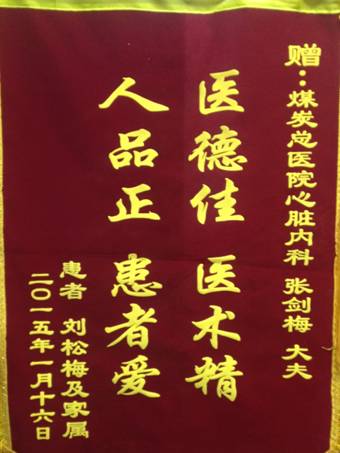 赠：煤炭总医院心脏内科 张剑梅 大夫
医德佳 医术精
人品正 患者爱
患者 刘松梅及家属
二〇一五年一月十六日